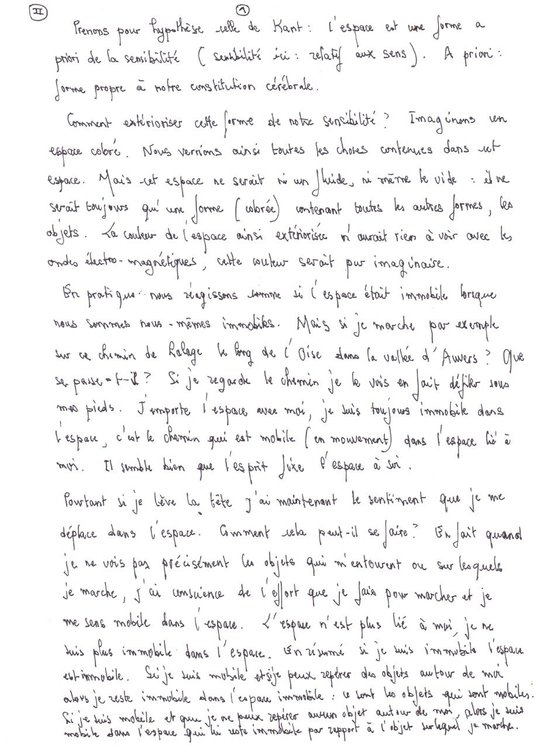 II 1
Prenons pour hypothèse celle de Kant : l'espace est une forme a
priori de la sensibilité ( sensibilité ici : relatif aux sens ). A priori :
forme propre à notre constitution cérébrale.
Comment extérioriser cette forme de notre sensibilité ? Imaginons un
espace coloré. Nous verrions ainsi toutes les choses contenues dans cet
espace. Mais cet espace ne serait ni un fluide, ni même le vide : il ne
serait toujours qu'une forme (colorée) contenant toutes les autres formes, les
objets. La couleur de l'espace ainsi extériorisée n'aurait rien à voir avec les
ondes électro-magnétiques, cette couleur serait pur imaginaire.
En pratique nous réagissons comme si l'espace était immobile lorsque
nous sommes nous-mêmes immobiles. Mais si je marche par exemple
sur ce chemin de halage le long de l'Oise dans la vallée d'Auvers ? Que
se passe-t-il ? Si je regarde le chemin je le vois en fait défiler sous
mes pieds. J'emporte l'espace avec moi, je suis toujours immobile dans
l'espace, c'est le chemin qui est mobile (en mouvement) dans l'espace lié à
moi. Il semble bien que l'esprit fixe l'espace à soi.
Pourtant si je lève la tête j'ai maintenant le sentiment que je me
déplace dans l'espace. Comment cela peut-il se faire ? En fait quand
je ne vois pas précisément les objets qui m'entourent ou sur lesquels
je marche, j'ai conscience de l'effort que je fais pour marcher et je
me sens mobile dans l'espace. L'espace n'est plus lié à moi, je ne
suis plus immobile dans l'espace. En résumé si je suis immobile l'espace
est immobile. Si je suis mobile et si je peux repérer des objets autour de moi
alors je reste immobile dans l'espace immobile : ce sont les objets qui sont mobiles.
Si je suis mobile et que je ne peux repérer aucun objet autour de moi, alors je suis
mobile dans l'espace qui lui reste immobile par rapport à l'objet sur lequel je marche.